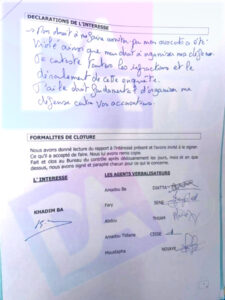 DECLARATIONS DE L'INTERESSE
→ Mon droit à me faire assister par mon avocat a été
violé ainsi que mon droit à organiser ma défense.
Je conteste toutes les infractions et le
déroulement de cette enquête.
J'ai le droit fondamental d'organiser ma
défense contre vos accusations.
FORMALITES DE CLOTURE
Nous avons donné lecture du rapport à l'intéressé présent et l'avons invité à le signer.
Ce qu'il a accepté de faire. Nous lui avons remis copie.
Fait et clos au Bureau du contrôle après dédouanement les jours, mois et an que
dessus, nous avons signé et paraphé chacun pour ce qui le concerne.
L'INTERESSE
LES AGENTS VERBALISATEURS
KHADIM BA
Amadou Ba DIATTA
Fary SENE
Abdou THIAM
Amadou Tidiane CISSE
Moustapha NDIAYE